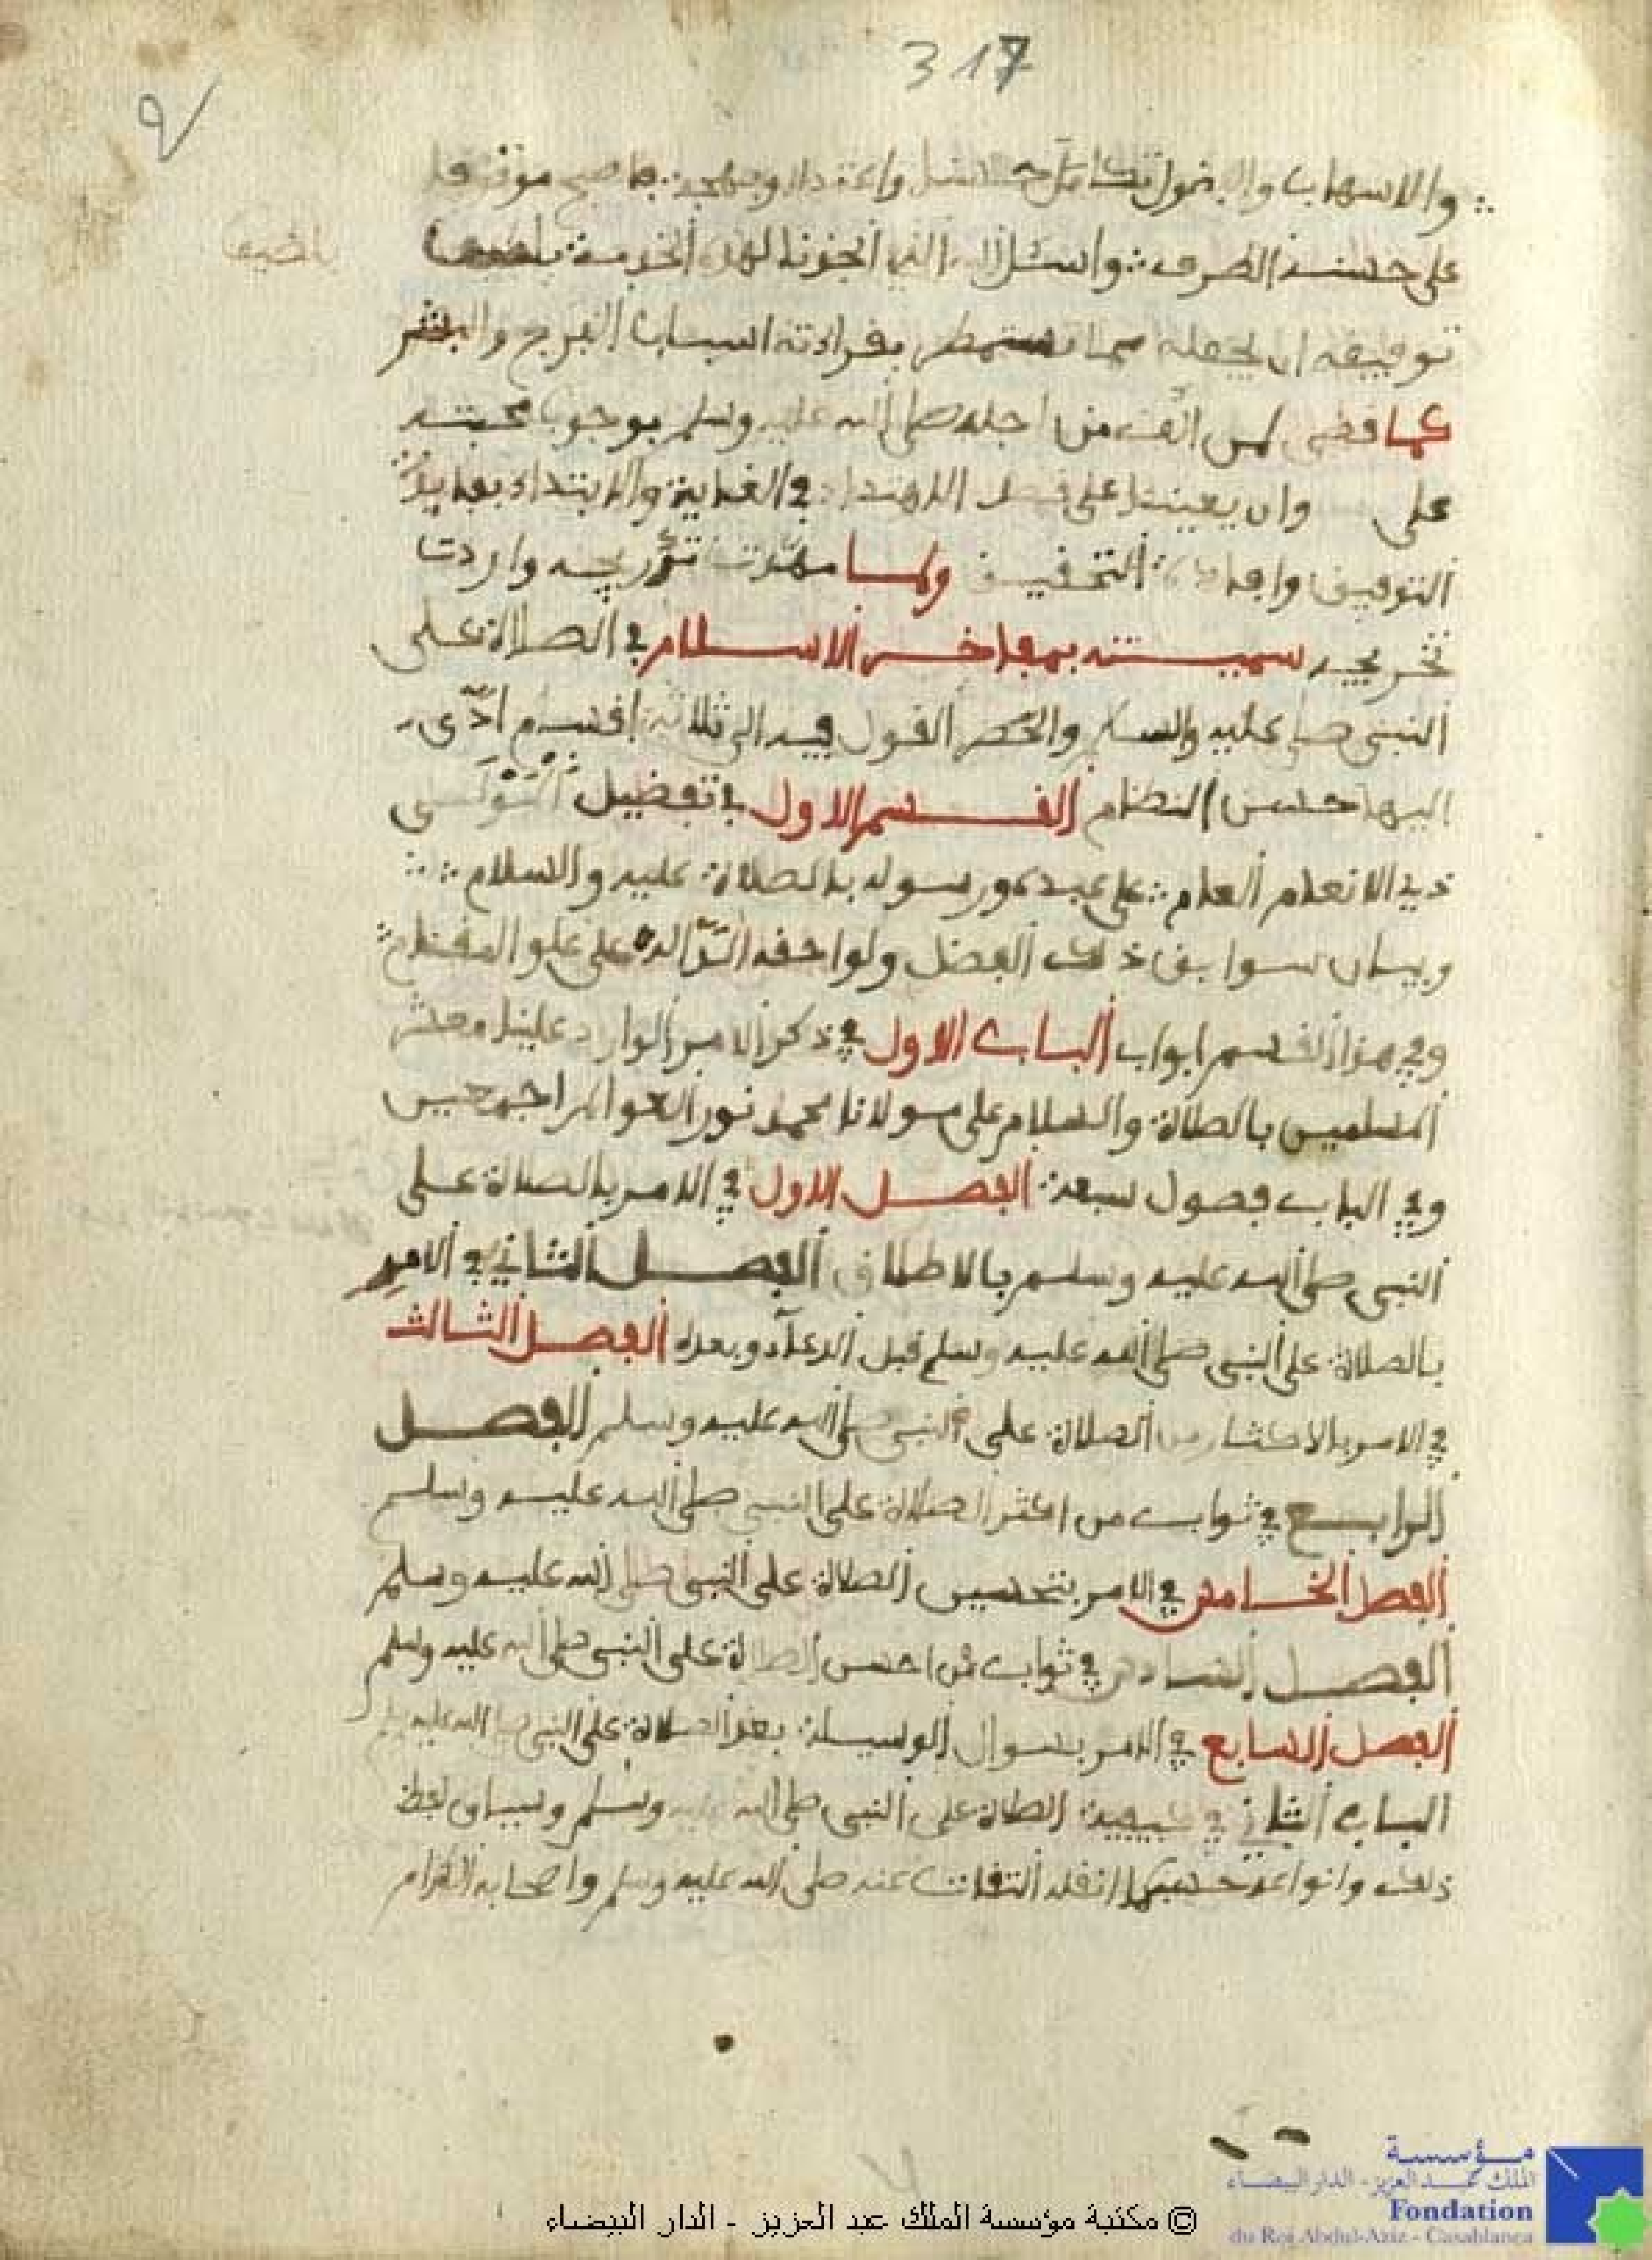 317
والاسهاب
على حسنه الطرف واسئل الله الذي انجزنا لهذه الخدمة بلطيف
توفيقه ان يجعله مما نستمطر بقراءته اسباب الفرج والبشر
كما قضى لمن الف من اجله صلى الله عليه وسلم بوجوب محبته
على وان يعيننا على في الغاية والابتداء
التوفيق التخفيف ولما تدريجه واردت
تخريجه سميته بمفاخر الاسلام في الصلاة على
النبي صل عليه والسلام وانحصر القول فيه الى ثلاثة اقسام ادّى
اليها حسن النظام القسم الاول في تفضيل المولى
ذي الانعام العام على عبده ورسوله بالصلاة عليه والسلام
وبيان سوابق ذلك الفضل ولواحقه الدّالة على علو المقام
وفي هذا القسم ابواب الباب الاول في ذكر الامر الوارد علينا معشر
المسلمين بالصلاة والسلام على مولانا محمد نور العوالم اجمعين
وفي الباب فصول سبعة الفصل الاول في الامر بالصلاة على
النبي صلى الله عليه وسلم بالاطلاق الفصل الثاني في الامر
بالصلاة على النبي صلى الله عليه وسلم قبل الدعاء وبعده الفصل الثالث
في الامر بالاكثار من الصلاة على النبي صلى الله عليه وسلم الفصل
الرابع في ثواب من اكثر الصلاة على النبي صلى الله عليه وسلم
الفصل الخامس في الامر بتحسين الصلاة على النبي صلى الله عليه وسلم
الفصل السادس في ثواب من احسن الصلاة على النبي صلى الله عليه وسلم
الفصل السابع في الامر بسوال الوسيلة بعد الصلاة على النبي صلى الله عليه وسلم
الباب الثاني في كيفية الصلاة على النبي صلى الله عليه وسلم وسياق لفظ
ذلك وانواعه حسبما نقله الثقات عنه صلى الله عليه وسلم واصحابه الكرام
© مكتبة مؤسسة الملك عبد العزيز - الدار البيضاء
مؤسسة
الملك عبد العزيز - الدار البيضاء
Fondation
du Roi Abdul-Aziz - Casablanca